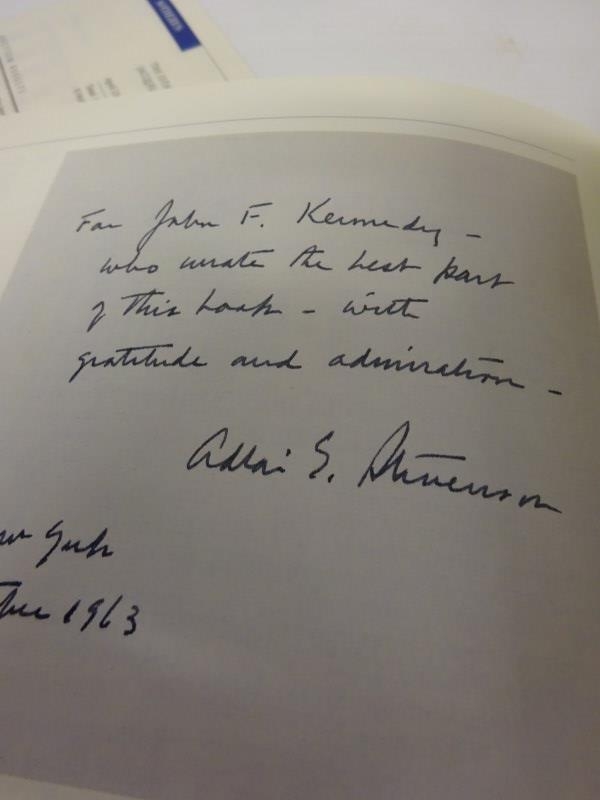 For John F. Kennedy –
who wrote the best part
of this book – with
gratitude and admiration –
Adlai E. Stevenson
York
1963